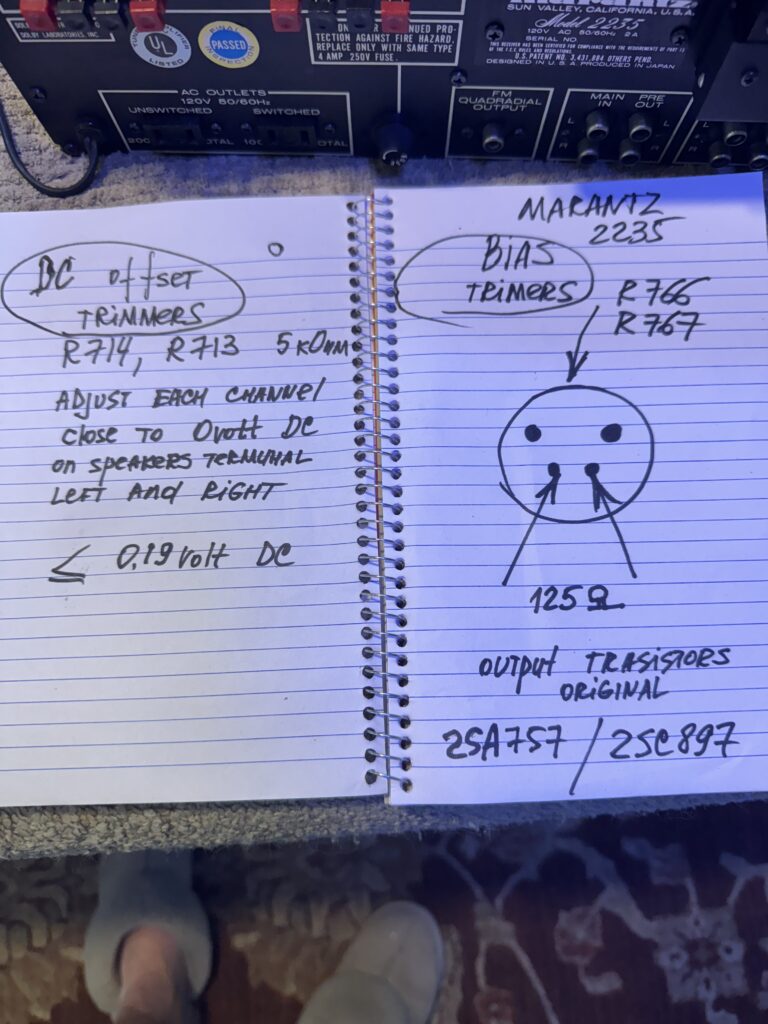 DOLBY LABORATORIES INC.
UL
LISTED
PASSED
TINUED PRO-
TECTION AGAINST FIRE HAZARD,
REPLACE ONLY WITH SAME TYPE
4 AMP 250V FUSE.
SUN VALLEY, CALIFORNIA, U.S.A.
Model 2235
120V AC 50/60Hz 2A
SERIAL NO
THIS RECEIVER HAS BEEN CERTIFIED FOR COMPLIANCE WITH THE REQUIREMENTS OF PART 15
OF THE F.C.C. RULES AND REGULATIONS.
U.S. PATENT NO. 3,431,884 OTHERS PEND.
DESIGNED IN U.S.A. PRODUCED IN JAPAN
AC OUTLETS
120V 50/60Hz
UNSWITCHED SWITCHED
FM
QUADRADIAL
OUTPUT
MAIN PRE
IN OUT
L L
R R
DC offset
TRIMMERS
R714, R713 5KOHM
ADJUST EACH CHANNEL
close TO 0volt DC
on SPEAKERS TERMINAL
LEFT AND RIGHT
≤ 0,19 volt DC
MARANTZ
2235
BIAS
TRIMERS
R766
R767
125Ω
OUTPUT TRASISTORS
ORIGINAL
2SA757 / 2SC897